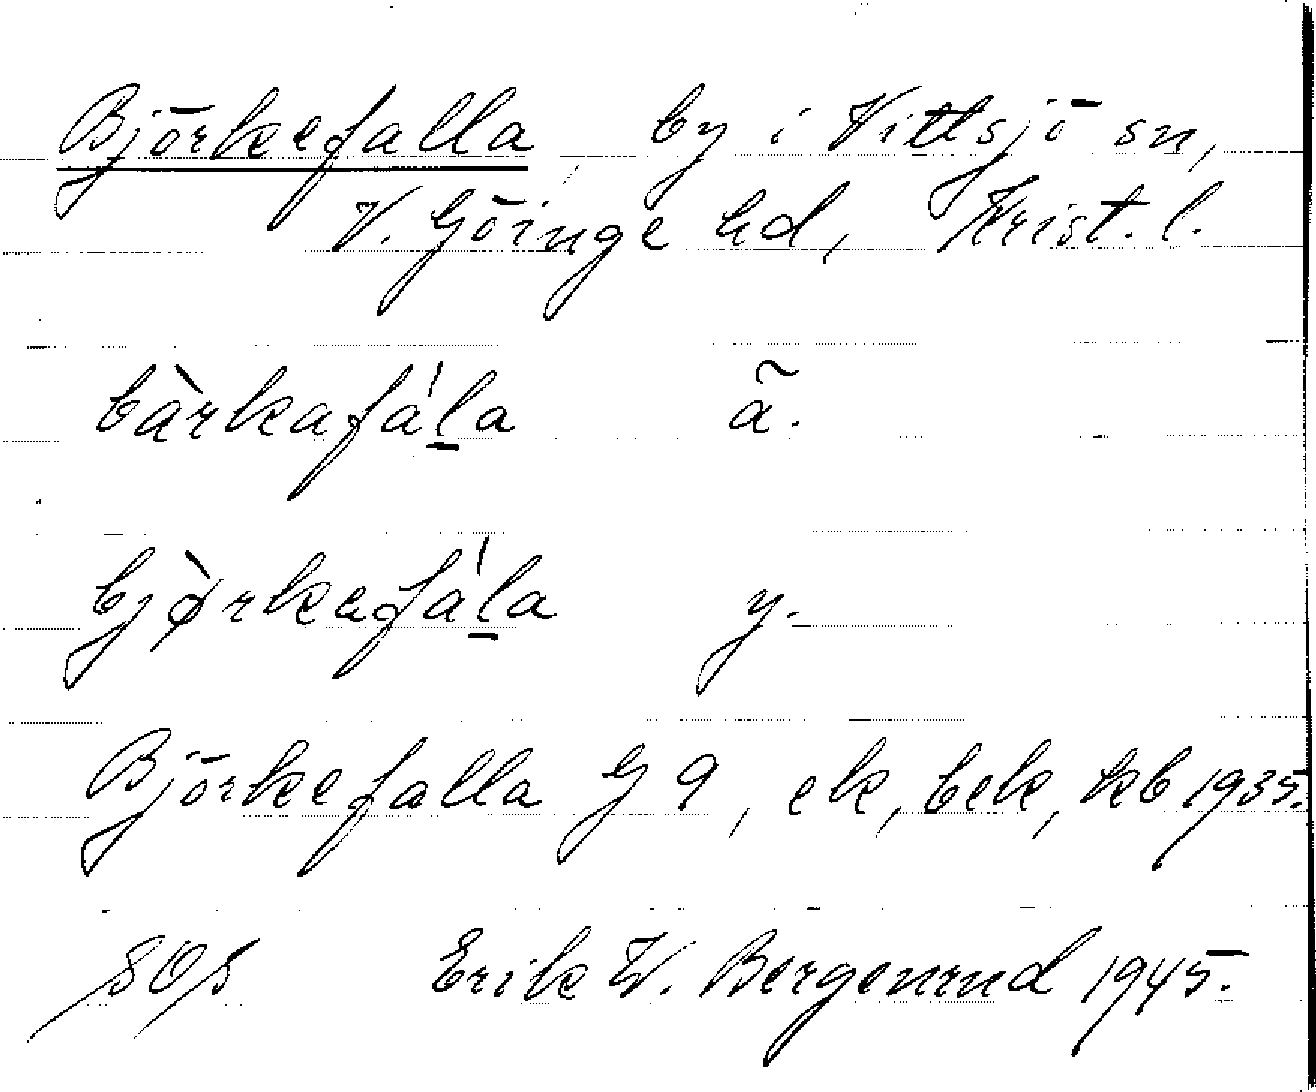 Björkefalla by i Vittsjö sn,
V. Göinge hd, Krist. l.
bàrkafáḻa ã.
bjø̀rkafáḻa y.
Björkefalla G 9, ek, bek, kb 1935.
SOS Erik W. Bergenrud 1945.